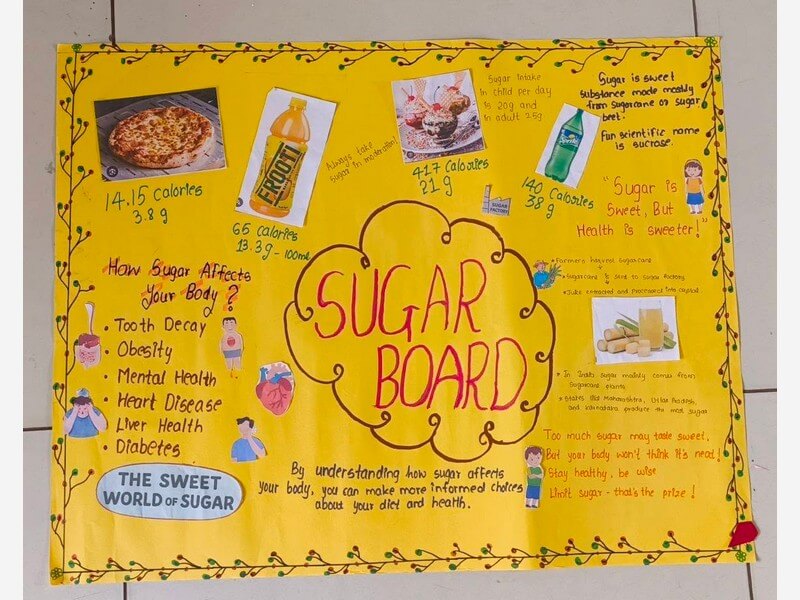 Sugar Intake
in child per day
is 20g and
in adult 25g
Sugar is sweet
substance made mostly
from sugarcane or sugar
beet.
Fun scientific name
is sucrose.
FROOTI
Sprite
Always take
sugar in moderation!
14.15 calories
3.8 g
65 calories
13.3g - 100ml
417 calories
21 g
140 calories
38 g
SUGAR
FACTORY
"Sugar is
Sweet, But
Health is sweeter!"
How Sugar Affects
Your Body ?
• Tooth Decay
• Obesity
• Mental Health
• Heart Disease
• Liver Health
• Diabetes
THE SWEET
WORLD OF SUGAR
SUGAR
BOARD
By understanding how sugar affects
your body, you can make more informed choices
about your diet and health.
Farmers harvest sugarcane
Sugarcane is sent to sugar factories
Juice extracted and processed into crystal
• In India sugar mainly comes from
sugarcane plants
• States like Maharashtra, Uttar Pradesh,
and karnataka produce the most sugar
Too much sugar may taste sweet,
But your body won't think it's neat!
Stay healthy, be wise
Limit sugar - that's the prize !